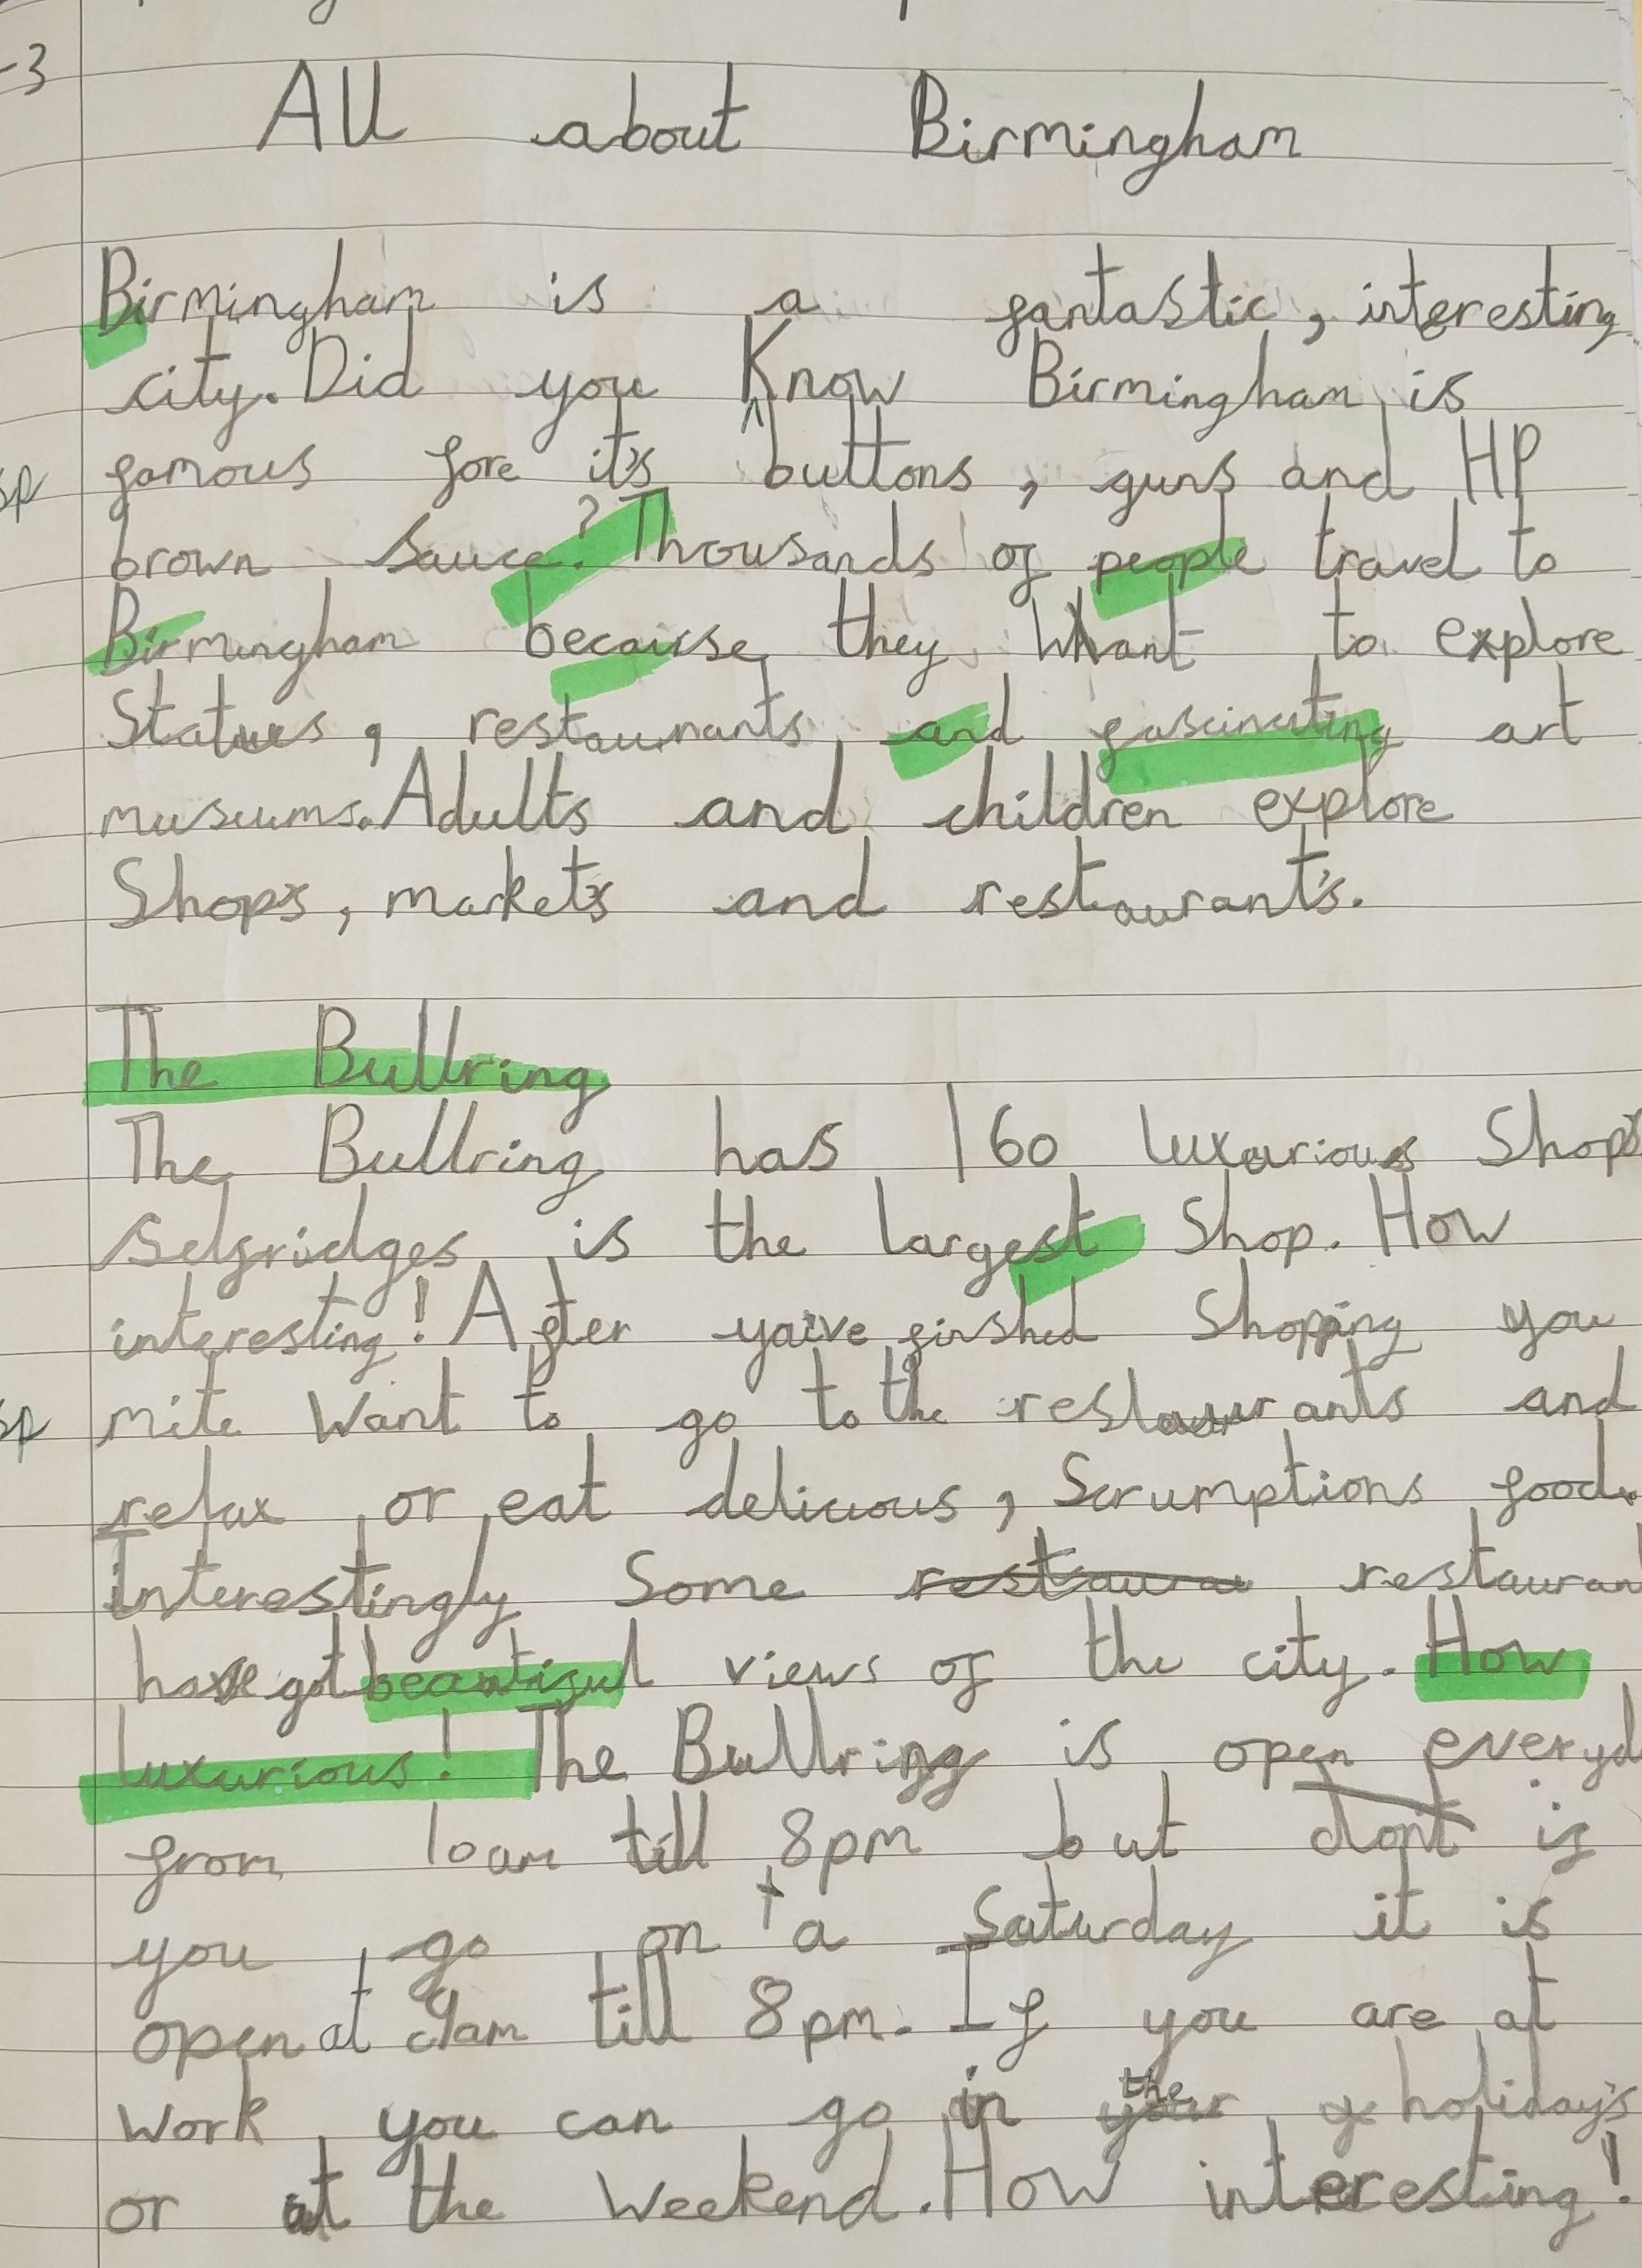 -3
All about Birmingham
Birmingham is a fantastic, interesting
city. Did you Know Birmingham is
sp famous fore it's buttons, guns and HP
brown sauce? Thousands of people travel to
Birmingham because they Want to explore
Statues, restaurants and fascinating art
museums. Adults and children explore
Shops, markets and restaurant's.
The Bullring
The Bullring has 160 luxurious Shops
Selfridges is the largest Shop. How
interesting! After you've finshed Shopping you
sp mite Want to go to the restaurants and
relax or eat delicious, Scrumptions food.
Interestingly Some restaura restauran
have got beautiful views of the city. How
luxurious! The Bullring is open everyd
from 10am till 8pm but don't if
you go on a Saturday it is
open at 9am till 8pm. If you are at
Work you can go in the holiday's
or at the Weekend. How interesting!